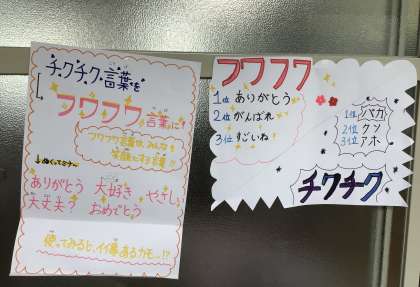 チクチク言葉を
フワフワ言葉に!
フワフワ言葉は、みんなを
笑顔にする言葉!!
ありがとう 大好き やさしい
大丈夫? おめでとう
使ってみると、イイ事あるカモ…!?
フワフワ
1位 ありがとう
2位 がんばれ
3位 すごいね!
1位 バカ
2位 クソ
3位 アホ
チクチク